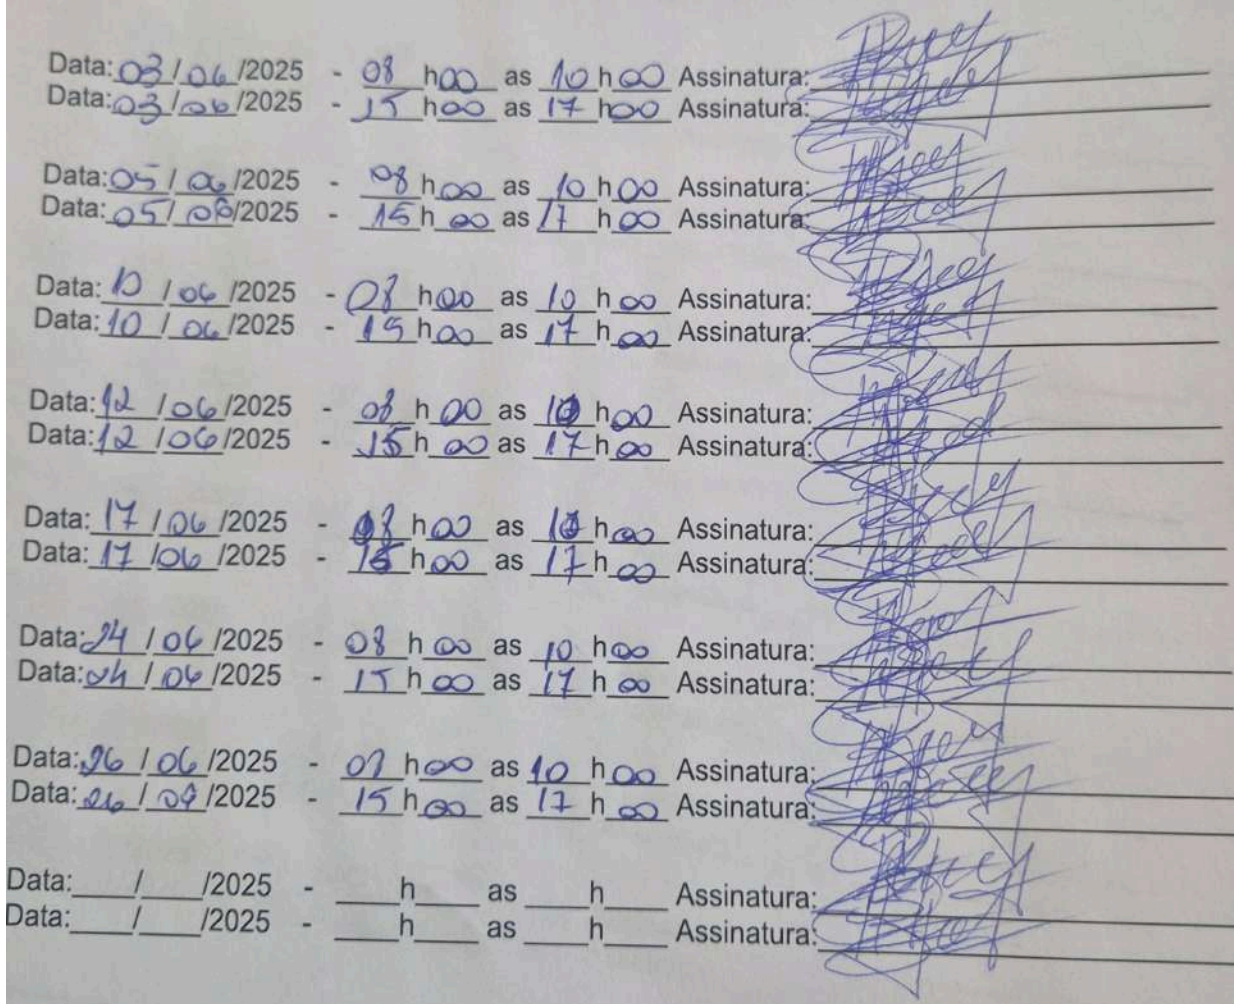 Data: 03/06/2025 - 08 h00 as 10 h00 Assinatura:
Data: 03/06/2025 - 15 h00 as 17 h00 Assinatura:
Data: 05/06/2025 - 08 h00 as 10 h00 Assinatura:
Data: 05/06/2025 - 15 h00 as 17 h00 Assinatura:
Data: 10/06/2025 - 08 h00 as 10 h00 Assinatura:
Data: 10/06/2025 - 15 h00 as 17 h00 Assinatura:
Data: 12/06/2025 - 08 h00 as 10 h00 Assinatura:
Data: 12/06/2025 - 15 h00 as 17 h00 Assinatura:
Data: 17/06/2025 - 08 h00 as 10 h00 Assinatura:
Data: 17/06/2025 - 15 h00 as 17 h00 Assinatura:
Data: 24/06/2025 - 08 h00 as 10 h00 Assinatura:
Data: 24/06/2025 - 15 h00 as 17 h00 Assinatura:
Data: 26/06/2025 - 08 h00 as 10 h00 Assinatura:
Data: 26/ /2025 - 15 h00 as 17 h00 Assinatura:
Data:____/____/2025 - ____h____ as ____h____ Assinatura:
Data:____/____/2025 - ____h____ as ____h____ Assinatura: